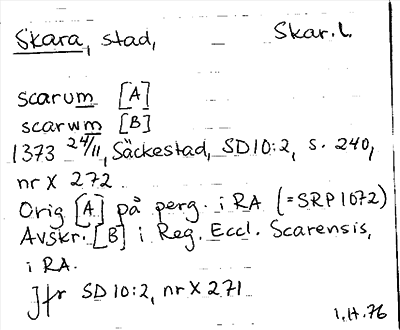 Skara, stad, — Skar. L.
scarum [A]
scarwm [B]
1373 24/11, Säckestad, SD10:2, s. 240,
nr X 272
Orig [A] på perg. i RA (=SRP 1072)
Avskr. [B] i Reg. Eccl. Scarensis,
i RA.
Jfr SD 10:2, nr X 271
1.H.76